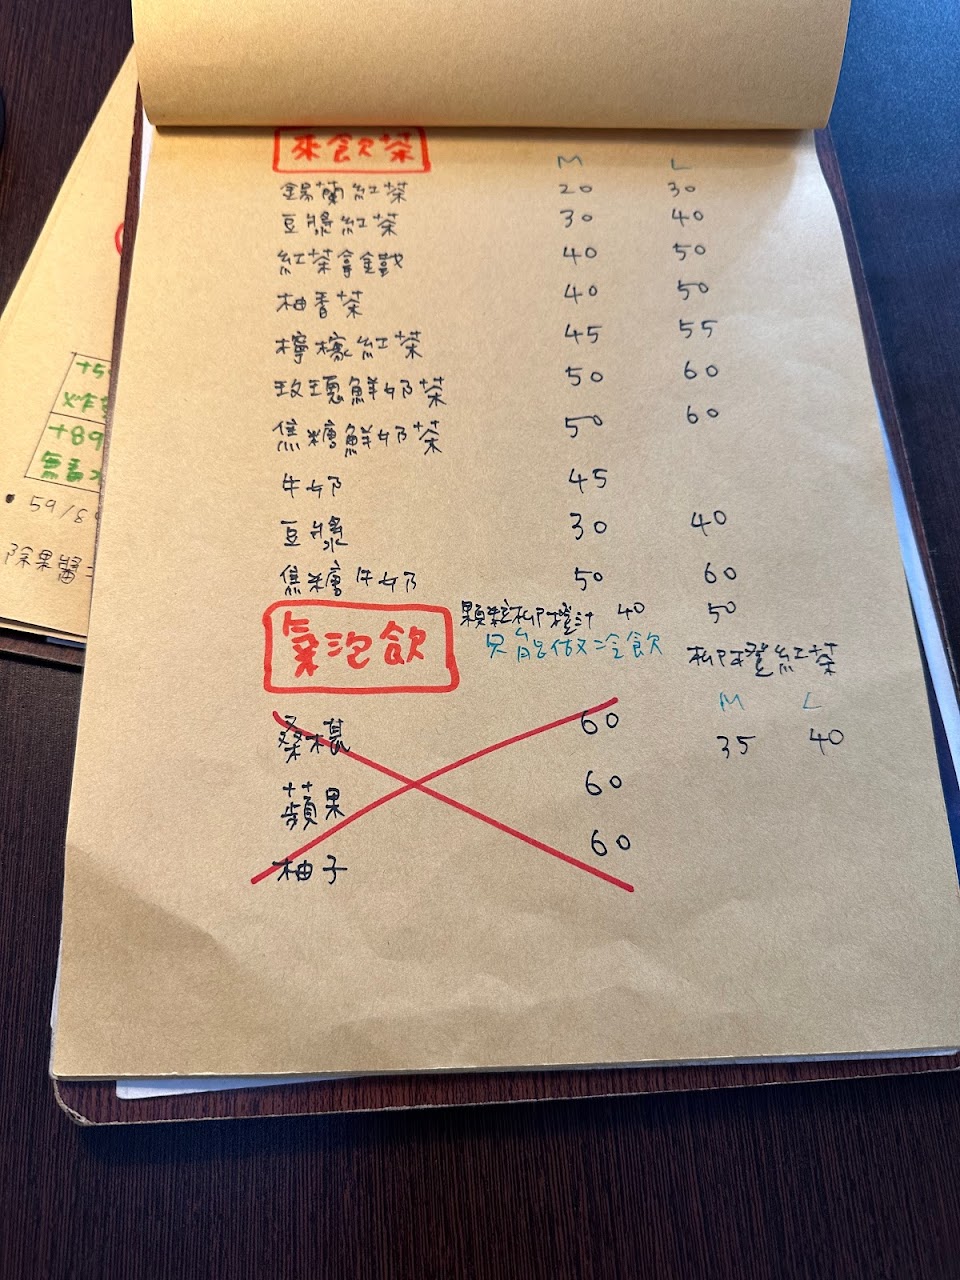 來飲茶 M L
錫蘭紅茶 20 30
豆漿紅茶 30 40
紅茶拿鐵 40 50
柚香茶 40 50
檸檬紅茶 45 55
玫瑰鮮奶茶 50 60
焦糖鮮奶茶 50 60
牛奶 45
豆漿 30 40
焦糖牛奶 50 60
顆粒柳橙汁 40 50
氣泡飲 只能做冷飲
柳橙紅茶
M L
35 40
桑椹 60
蘋果 60
柚子 60
+5
炸
+89
無
• 59/89
除果醬